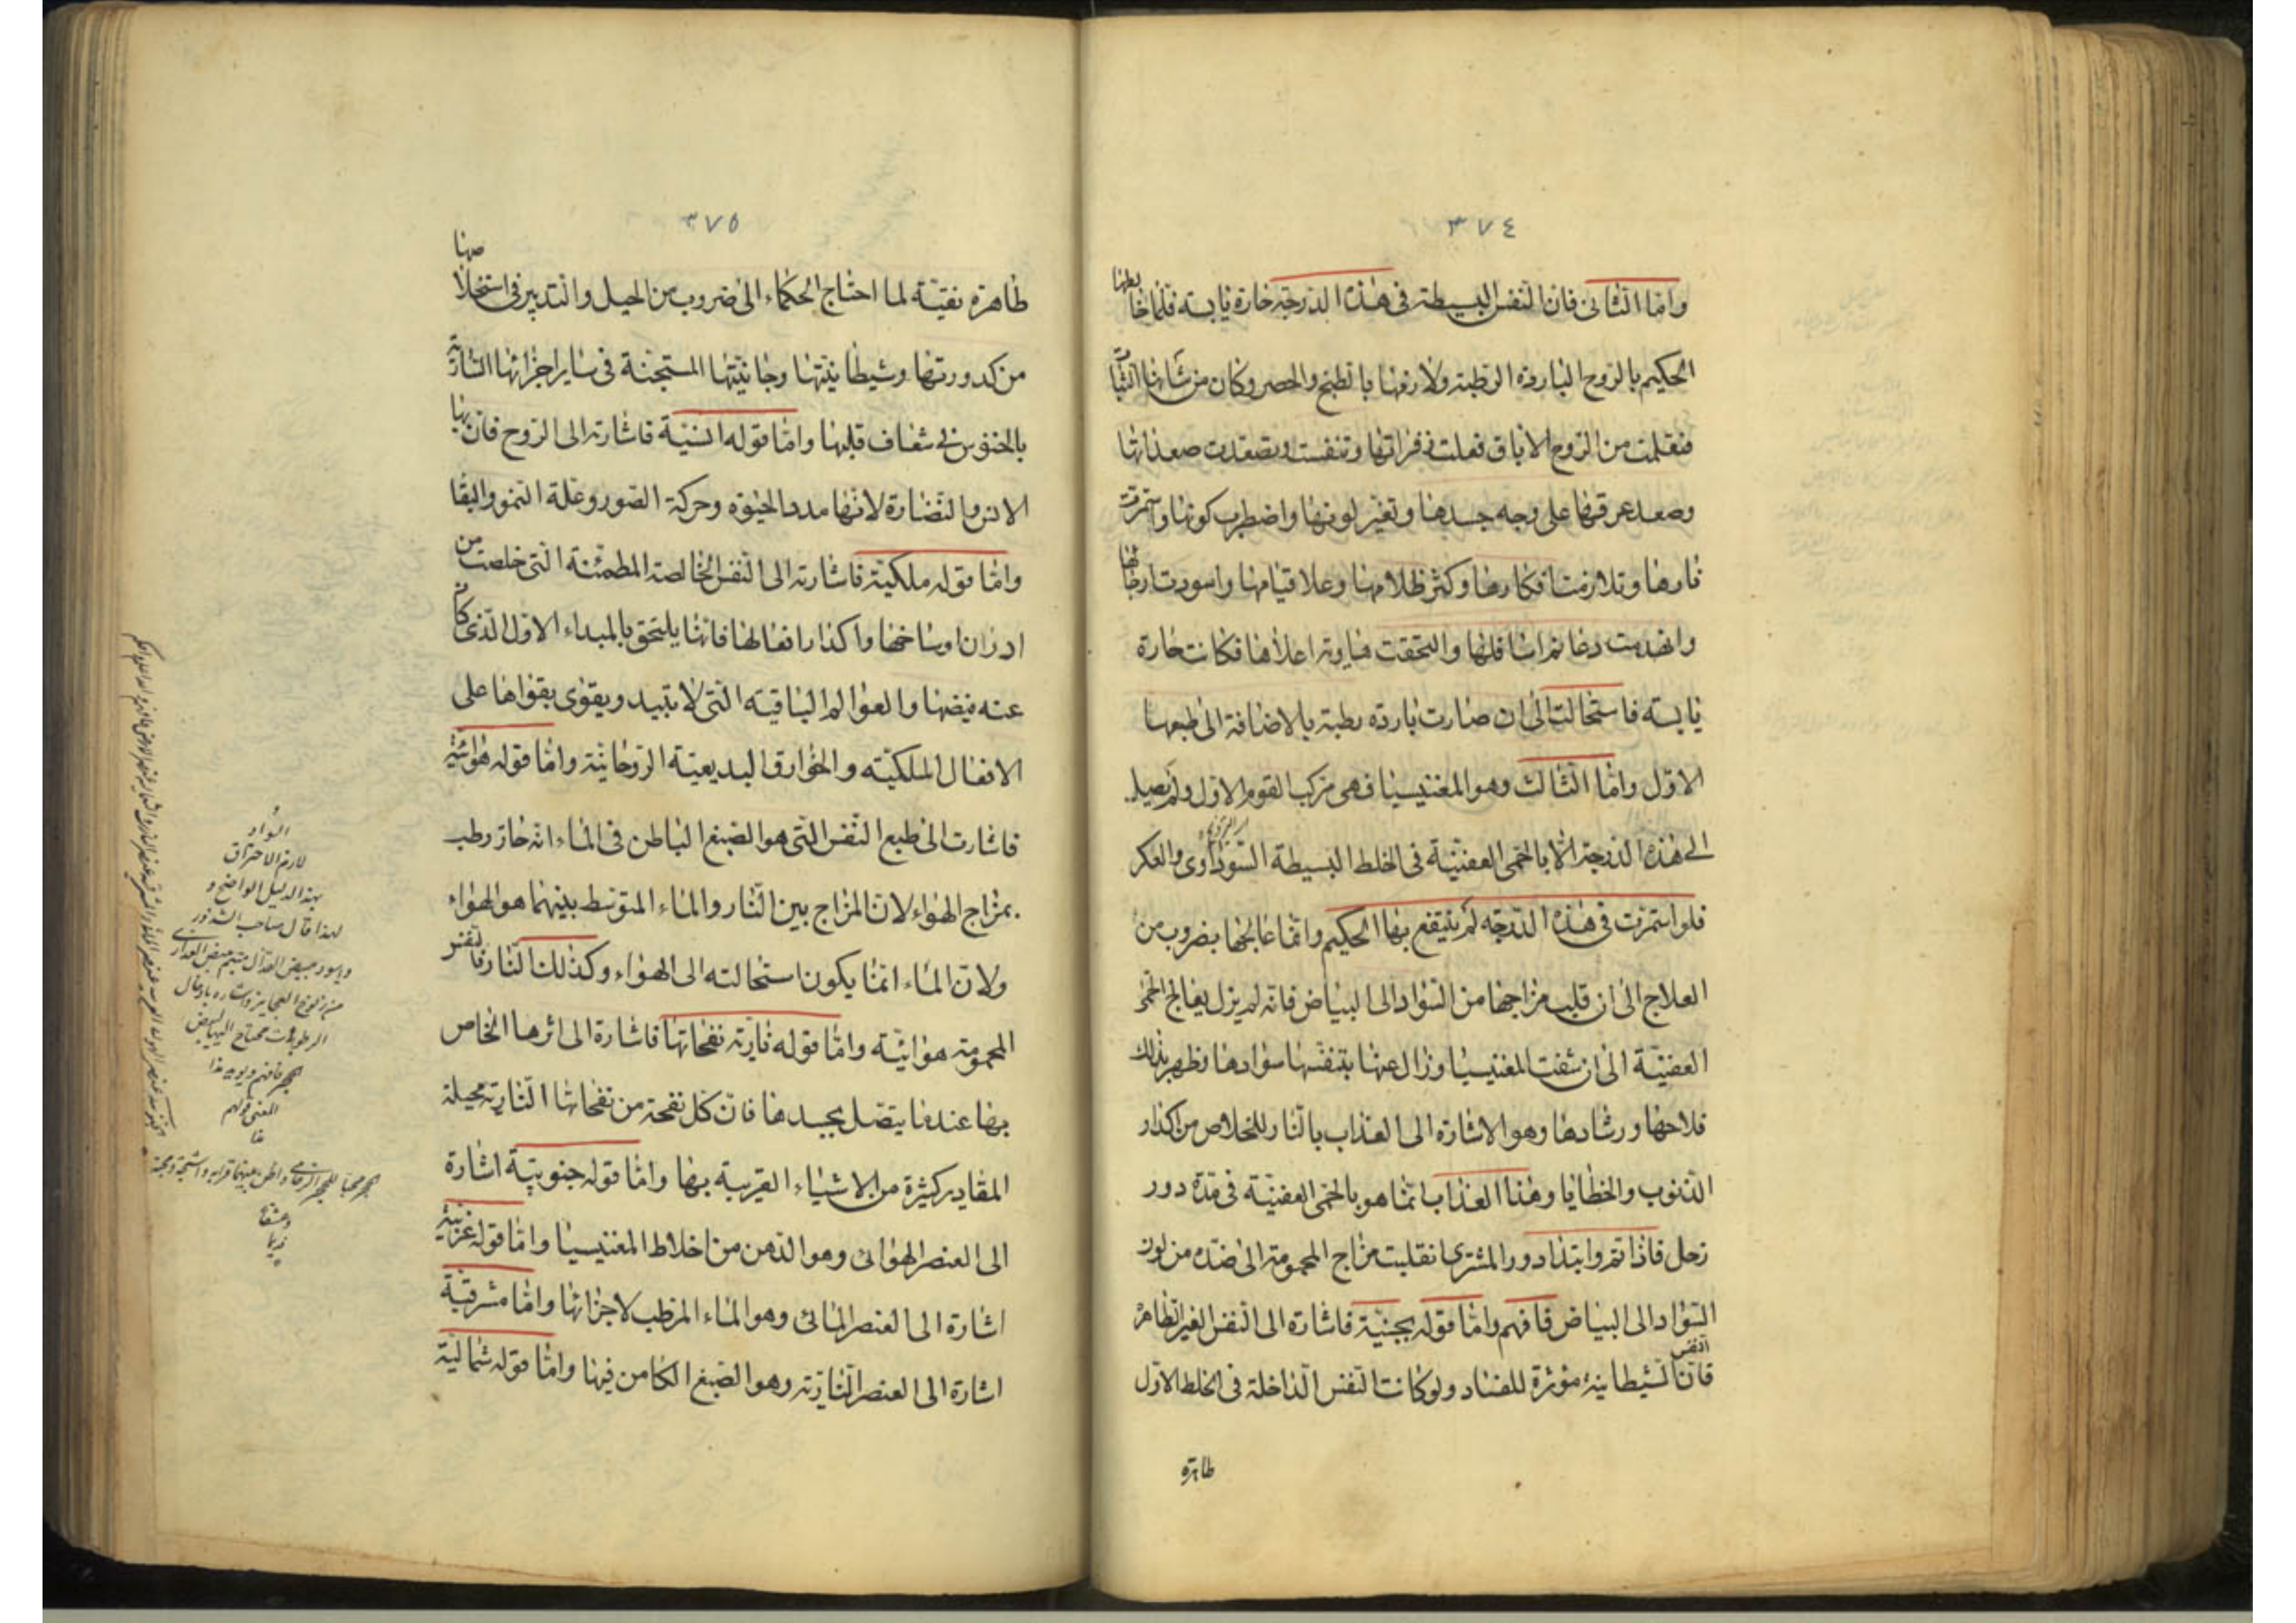 ٣٧٤
وامّا الثانى فان النفس البسيطة فى هذا الدرجة حارة يابسة فلمّا خالطها
الحكيم بالروح الباردة الرطبة ولازمها بالطبخ والحصر وكان من شانها الثبات
ومنعلمت من الروح الاباق فعلت زفراتها وتنفست وتصعدت صعداتها
وصعد عرقها على وجه جسدها وتغير لونها واضطرب كونها واستمرت
نارها وتلازمت افكارها وكثر ظلامها وعلا قيامها واسودت ارجائها
وانهدمت دعائم اسافلها والتحقت اعلاها فكانت حارة
يابسة فاستحالت الى ان صارت باردة رطبة بالاضافة الى طبعها
الاول وامّا الثالث وهو المغنيسيا فهى مركب القوم الاول ولم يصل
الى هذه الدرجة الا بالحمى العفنية فى الخلط البسيطة السوداوى والعكر
فلو استمرت فى هذه الدرجة لم ينتفع بها الحكيم وانما عالجها بضروب من
العلاج الى ان قلب مزاجها من السواد الى البياض فانه لم يزل يعالج الحمى
العفنية الى ان شفت المغنيسيا وزال عنها بتنفسها سوادها وظهر بذلك
فلاحها ورشادها وهو الاشارة الى العذاب بالنار للخلاص من اكدار
الذنوب والخطايا وهذا العذاب انما هو بالحمى العفنية فى مدة دور
زحل فاذا تم وابتدا دور المشترى انقلبت مزاج المحمومة الى ضده من لون
السواد الى البياض فافهم وامّا قوله بجنية فاشارة الى النفس الغير الطاهرة
فان النفس الشيطانية مؤثرة للفساد ولو كانت النفس الداخلة فى الخلط الاول
طاهرة
٣٧٥
طاهرة نقية لما احتاج الحكماء الى ضروب من الحيل والتدبير فى استخلاصها
من كدورتها وشيطانيتها وجانيتها المستجنة فى ساير اجزائها السارية
بالخنوس فى شغاف قلبها وامّا قوله انسية فاشارة الى الروح فان بها
الانس والنضارة لانها مدد الحيوة وحركة الصور وعلة النمو والبقا
وامّا قوله ملكية فاشارة الى النفس الخالصة المطمئنة التى خلصت من
ادران اوساخها واكدار افعالها فانها يلتحق بالمبداء الاول الذى كان
عنه فيضها والعوالم الباقية التى لا تبيد ويقوى بقواها على
الافعال الملكية والخوارق البديعية الروحانية وامّا قوله هوائية
فاشارت الى طبع النفس التى هو الصبغ الباطن فى الماء انه حار رطب
بمزاج الهواء لان المزاج بين النار والماء المتوسط بينهما هو الهواء
ولان الماء انما يكون استحالته الى الهواء وكذلك النار فالنفس
المحمومة هوائية وامّا قوله نارية نفحاتها فاشارة الى اثرها الخاص
بها عندما يتصل بجسدها فان كل نفحة من نفحاتها النارية محيلة
المقادير كثيرة من الاشياء القريبة بها وامّا قوله جنوبية اشارة
الى العنصر الهوائى وهو الدهن من اخلاط المغنيسيا وامّا قوله غربية
اشارة الى العنصر المائى وهو الماء المرطب لاجزائها وامّا مشرقية
اشارة الى العنصر النارية وهو الصبغ الكامن فيها وامّا قوله شمالية
السواد
لازم الاحتراق
بهذا الدليل الواضح و
لهذا قال صاحب الشذور